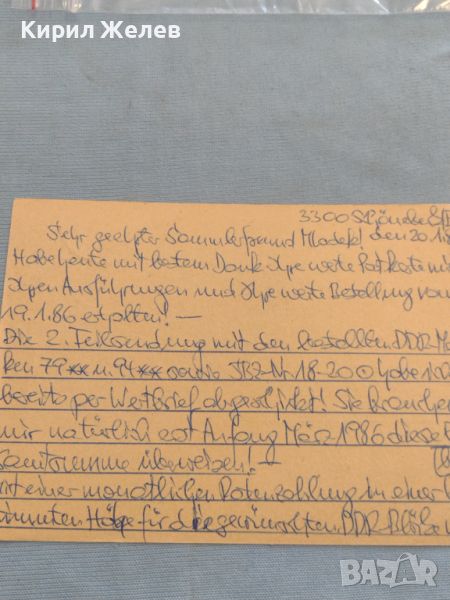 Кирил Желев
3300 Schönebeck
Sehr geehrter Sammlerfreund Mladek! den 20.1.8
Habe heute mit bestem Dank Ihre werte Postkarte mit
Ihren Ausführungen und Ihre werte Bestellung vom
19.1.86 erhalten! —
Die 2. Teilsendung mit den bestellten DDR-Mar
ken 79** u. 94** sowie SBZ-Nr 18-20 ⊙ habe ich
bereits per Wertbrief abgeschickt! Sie brauchen
mir natürlich erst Anfang März 1986 diese
Gesamtsumme überweisen! —
mit einer monatlichen Ratenzahlung in einer be
stimmten Höhe für die gewünschten DDR-Blöcke
BAZAR
bg